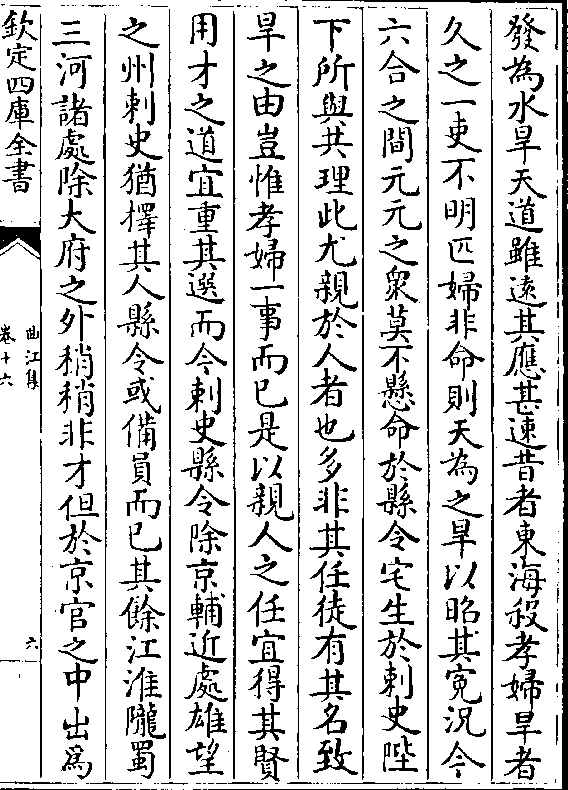 發為水旱天道雖遠其應甚速昔者東海殺孝婦旱者
久之一吏不明匹婦非命則天為之旱以昭其寃況今
六合之間元元之衆莫不懸命於縣令宅生於刺史陛
下所與共理此尤親於人者也多非其任徒有其名致
旱之由豈惟孝婦一事而已是以親人之任宜得其賢
用才之道宜重其選而今刺史縣令除京輔近處雄望
之州刺史猶擇其人縣令或備員而已其餘江淮隴蜀
三河諸處除大府之外稍稍非才但於京官之中出爲
欽定四庫全書
曲江集
卷十六
六